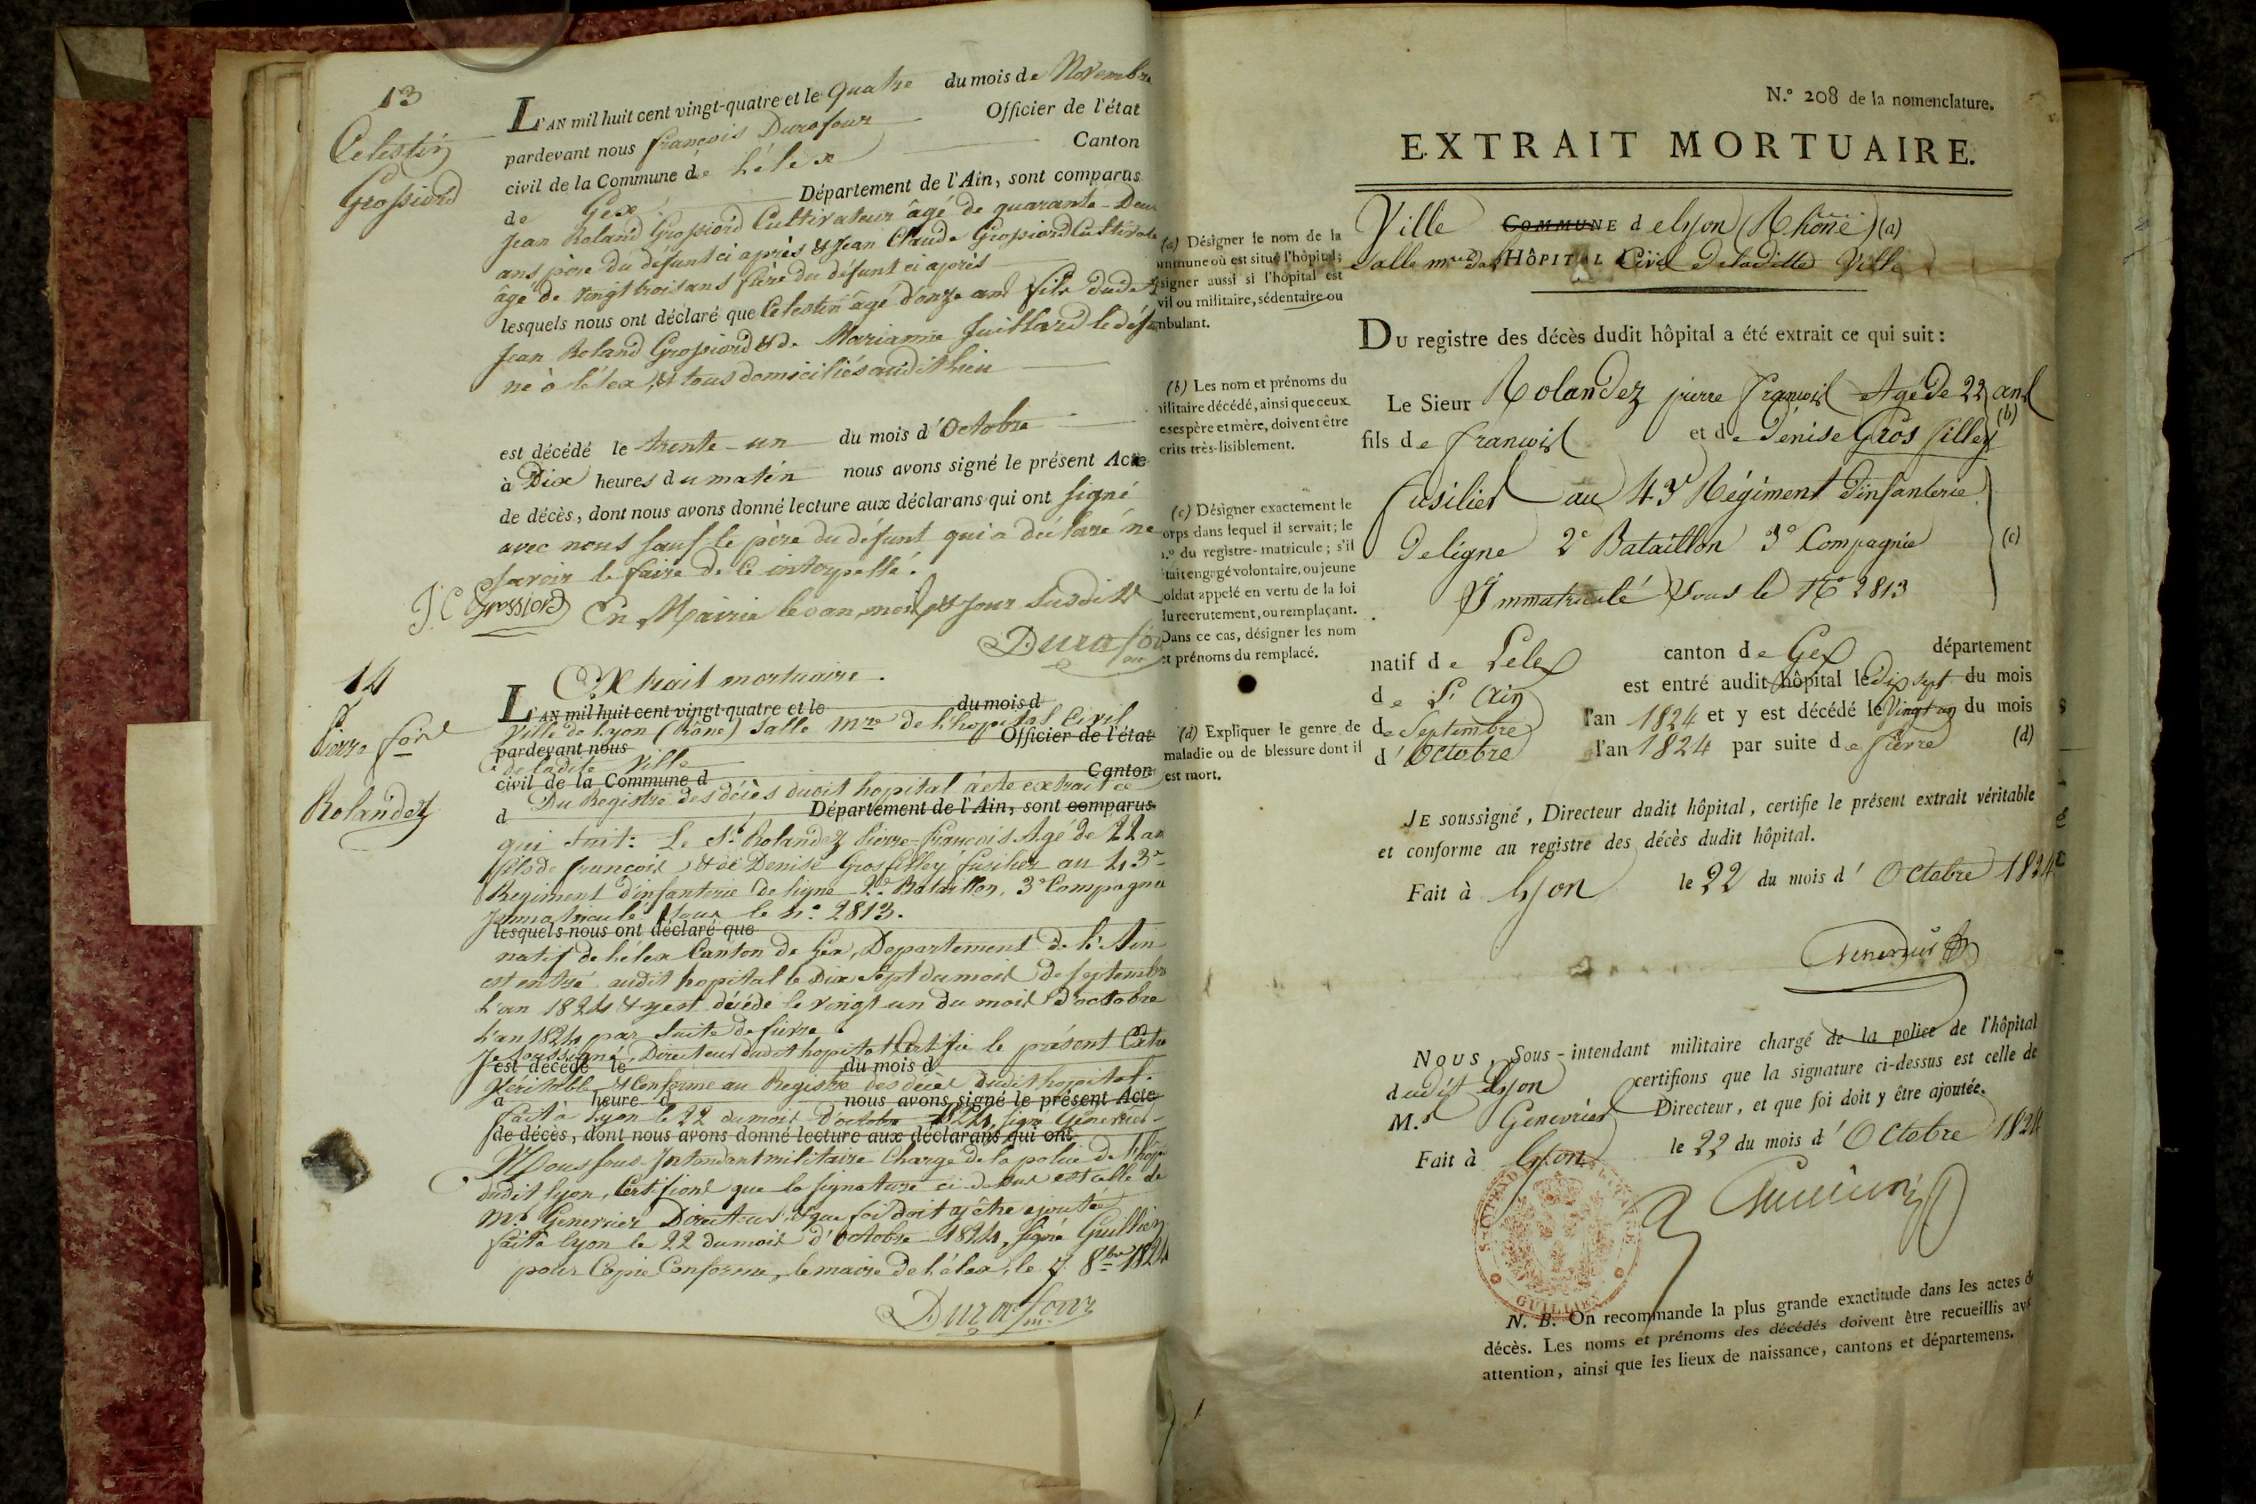 13
Celestin
Grossiord
L'AN mil huit cent vingt-quatre et le quatre du mois de Novembre
pardevant nous françois Durafour Officier de l'état
civil de la Commune de Lélex Canton
de Gex Département de l'Ain, sont comparus
Jean Roland Grossiord Cultivateur âgé de quarante-Deux
ans père du défunt ci après & Jean Claude Grossiord Cultivate
âgé de vingt trois ans frère du défunt ci après
lesquels nous ont déclaré que Celestin âgé d'onze ans fils dudit
Jean Roland Grossiord & de Marianne Juilland le défunt
né à Lélex, & tous domiciliés audit lieu
est décédé le trente-un du mois d'Octobre
à Dix heures du matin nous avons signé le présent Acte
de décès, dont nous avons donné lecture aux déclarans qui ont signé
avec nous sauf le père du défunt qui a déclaré ne
savoir le faire de ce interpellé.
J C Grossiord En Mairie les an, mois & jour susdits
Durafour
14
Pierre fois
Rolandez
Extrait mortuaire.
L'AN mil huit cent vingt-quatre et le du mois d
Ville de Lyon (Rône) Salle Mre de l'hopital Civil
pardevant nous Officier de l'état
de ladite Ville
civil de la Commune d Canton
Du Registre des décès dudit hopital a été extrait ce
d Département de l'Ain, sont comparus
qui suit: Le Sr. Rolandez Pierre-François Agé de 22 an
fils de françois, & de Denise Grosfilley fusilier au 43e
Regiment d'infanterie de ligne 2e Bataillon, 3e Compagnie
Immatriculé sous le n.o 2813.
lesquels nous ont déclaré que
natif de Lélex Canton de Gex, Département de l'Ain
est entré audit hopital le Dix sept du mois de septembre
l'an 1824 & y est décédé le vingt un du mois d'octobre
l'an 1824 par suite de fièvre.
Je soussigné, Directeur dudit hopital Certifie le présent Extr
est décédé le du mois d
Véritable & Conforme au Registre des décès dudit hopital.
à heure d nous avons signé le présent Acte
fait à Lyon le 22 du mois d'octobre 1824, signé Genevrier
de décès, dont nous avons donné lecture aux déclarans qui ont
Nous sous-Intendant militaire Chargé de la police de l'hop
dudit Lyon, Certifions que la signature ci-dessus est celle de
Mr. Genevrier Directeur, & que foi doit y être ajoutée
fait à Lyon le 22 du mois d'Octobre 1824, signé Guillien
pour Copie Conforme, le maire de Lélex, le 7 8bre 1824
Durafour
(a) Désigner le nom de la
ommune où est situé l'hôpital;
signer aussi si l'hôpital est
vil ou militaire, sédentaire ou
mbulant.
(b) Les nom et prénoms du
ilitaire décédé, ainsi que ceux
e ses père et mère, doivent être
crits très-lisiblement.
(c) Désigner exactement le
orps dans lequel il servait; le
n.º du registre-matricule; s'il
était engagé volontaire, ou jeune
oldat appelé en vertu de la loi
du recrutement, ou remplaçant.
Dans ce cas, désigner les nom
et prénoms du remplacé.
(d) Expliquer le genre de
maladie ou de blessure dont il
est mort.
N.º 208 de la nomenclature.
EXTRAIT MORTUAIRE.
Ville COMMUNE de Lyon (Rhône) (a)
Salle mre de l'HÔPITAL Civil de ladite Ville
DU registre des décès dudit hôpital a été extrait ce qui suit:
Le Sieur Rolandez pierre françois Agé de 22 ans (b)
fils de françois et de Denise Gros filley
fusilier au 43e Régiment d'infanterie
De ligne 2e Bataillon 3e Compagnie (c)
Immatriculé Sous le No 2813
natif de Lelex canton de Gex département
de l'Ain est entré audit hôpital le dix sept du mois
de Septembre l'an 1824 et y est décédé le vingt un du mois
d'Octobre l'an 1824 par suite de fièvre (d)
JE soussigné, Directeur dudit hôpital, certifie le présent extrait véritable
et conforme au registre des décès dudit hôpital.
Fait à Lyon le 22 du mois d'Octobre 1824
Genevrier
NOUS, Sous-intendant militaire chargé de la police de l'hôpital
dudit Lyon certifions que la signature ci-dessus est celle de
M.r Genevrier Directeur, et que foi doit y être ajoutée.
Fait à Lyon le 22 du mois d'Octobre 1824
GUILLIEN
N. B. On recommande la plus grande exactitude dans les actes de
décès. Les noms et prénoms des décédés doivent être recueillis ave
attention, ainsi que les lieux de naissance, cantons et départemens.